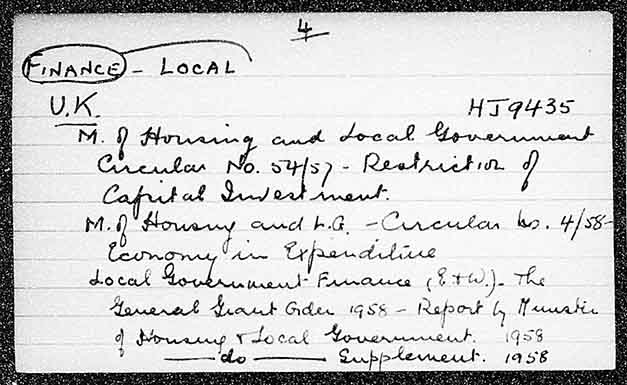 4
FINANCE - LOCAL
U.K. HJ9435
M. of Housing and Local Government
Circular No. 54/57 - Restriction of
Capital Investment.
M. of Housing and L.G. - Circular No. 4/58 -
Economy in Expenditure
Local Government Finance (E & W.). - The
General Grant Order 1958 - Report by Minister
of Housing & Local Government. 1958
— do — Supplement. 1958